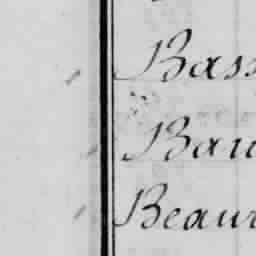 Bass
Bau
Beaur